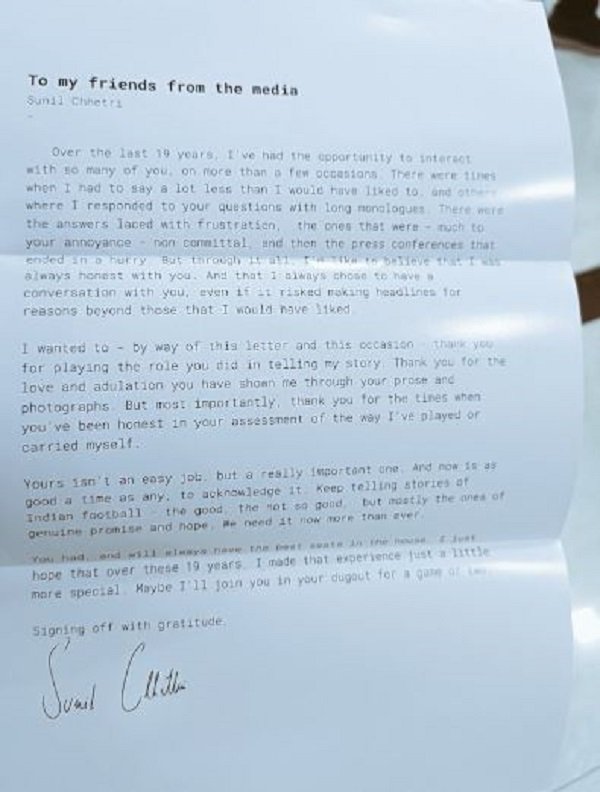 To my friends from the media
Sunil Chhetri
-
Over the last 19 years, I've had the opportunity to interact
with so many of you, on more than a few occasions. There were times
when I had to say a lot less than I would have liked to, and others
where I responded to your questions with long monologues. There were
the answers laced with frustration, the ones that were - much to
your annoyance - non committal, and then the press conferences that
ended in a hurry. But through it all, I'd like to believe that I was
always honest with you. And that I always chose to have a
conversation with you, even if it risked making headlines for
reasons beyond those that I would have liked.
I wanted to - by way of this letter and this occasion - thank you
for playing the role you did in telling my story. Thank you for the
love and adulation you have shown me through your prose and
photographs. But most importantly, thank you for the times when
you've been honest in your assessment of the way I've played or
carried myself.
Yours isn't an easy job, but a really important one. And now is as
good a time as any, to acknowledge it. Keep telling stories of
Indian football - the good, the not so good, but mostly the ones of
genuine promise and hope. We need it now more than ever.
You had, and will always have the best seats in the house. I just
hope that over these 19 years, I made that experience just a little
more special. Maybe I'll join you in your dugout for a game or
Signing off with gratitude,
Sunil Chhetri